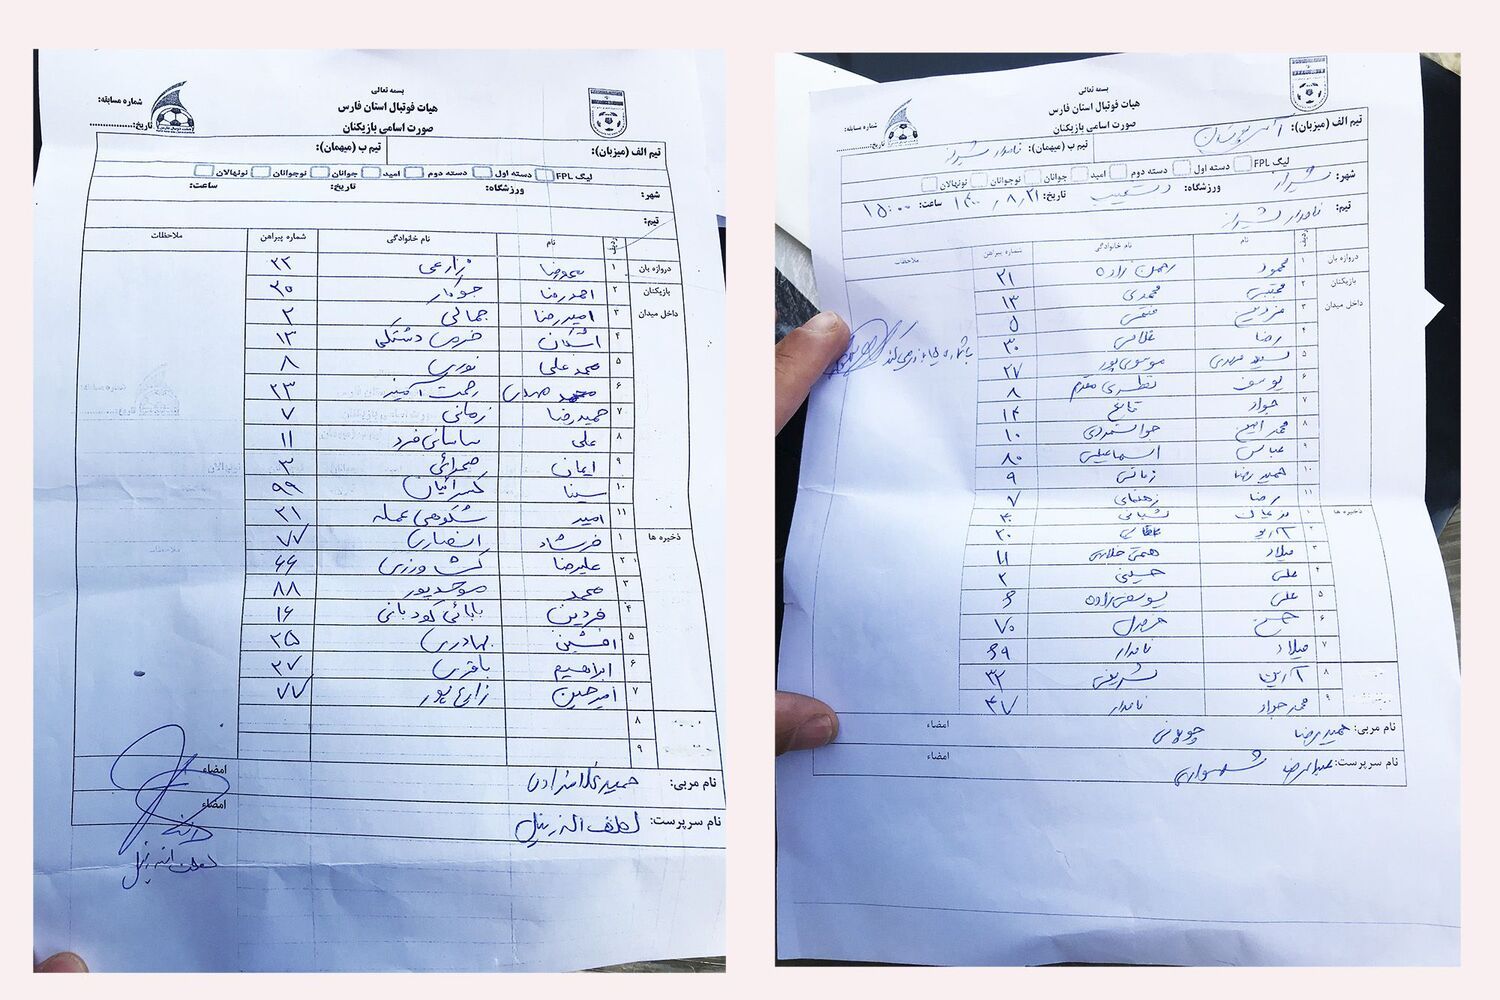 بسمه تعالی
هیات فوتبال استان فارس
صورت اسامی بازیکنان
شماره مسابقه:
تاریخ:
تیم الف (میزبان): تیم ب (میهمان):
لیگ FPL دسته اول دسته دوم امید جوانان نوجوانان نونهالان
شهر: ورزشگاه: تاریخ: ساعت:
تیم:
ردیف نام نام خانوادگی شماره پیراهن ملاحظات
دروازه بان ۱ زارعی ۲۲
بازیکنان ۲ احمدرضا جوکار
داخل میدان ۳ امیررضا جمالی ۲
۴ اشکان خرمی دشتکی ۱۳
۵ محمدعلی نوری ۸
۶ محمد مهدی رحمت ۲۳
۷ حمیدرضا زمانی ۷
۸ علی ساسانی فرد ۱۱
۹ ایمان صحرائی ۳
۱۰ سینا ۹۹
۱۱ امیر شکوهی عمله ۲۱
ذخیره ها ۱ فرشاد انصاری ۷۷
۲ علیرضا کشاورزی ۶۶
۳ محمد موحدپور ۸۸
۴ فردین بابائی کودیانی ۱۶
۵ افشین بهادری ۲۵
۶ ابراهیم باقری ۲۷
۷ امیرحسین زارع پور ۷۷
۸
۹
نام مربی: حمید غلامزاده امضاء
نام سرپرست: لطف اله زنبیل امضاء
بسمه تعالی
هیات فوتبال استان فارس
صورت اسامی بازیکنان
شماره مسابقه:
تاریخ:
تیم الف (میزبان): تیم ب (میهمان): نامدار شیراز
لیگ FPL دسته اول دسته دوم امید جوانان نوجوانان نونهالان
شهر: شیراز ورزشگاه: دستغیب تاریخ: ۱۴۰۰/۸/۲۱ ساعت: ۱۵:۰۰
تیم: نامدار شیراز
ردیف نام نام خانوادگی شماره پیراهن ملاحظات
دروازه بان ۱ محمود رحمن زاده ۲۱
بازیکنان ۲ مجتبی محمدی ۱۳
داخل میدان ۳ ۵
۴ رضا غلامی ۳۰
۵ سید مهدی موسوی پور ۲۷
۶ یوسف نظری مقدم ۸
۷ جواد قانع ۱۴
۸ محمد امین ۱۰
۹ عباس اسماعیلی ۸۰
۱۰ حمیدرضا زمانی ۹
۱۱ رضا ۷
ذخیره ها ۱ شبانی
۲ ۲۰
۳ میلاد همتی ۱۱
۴ علی حسینی ۲
۵ علی یوسفی زاده ۶
۶ حسن ۷۰
۷ میلاد نامدار ۶۹
۸ آرین شریفی ۳۲
۹ محمد جواد نامدار ۴۷
نام مربی: حمیدرضا چوپانی امضاء
نام سرپرست: عبدالرضا شهسواری امضاء